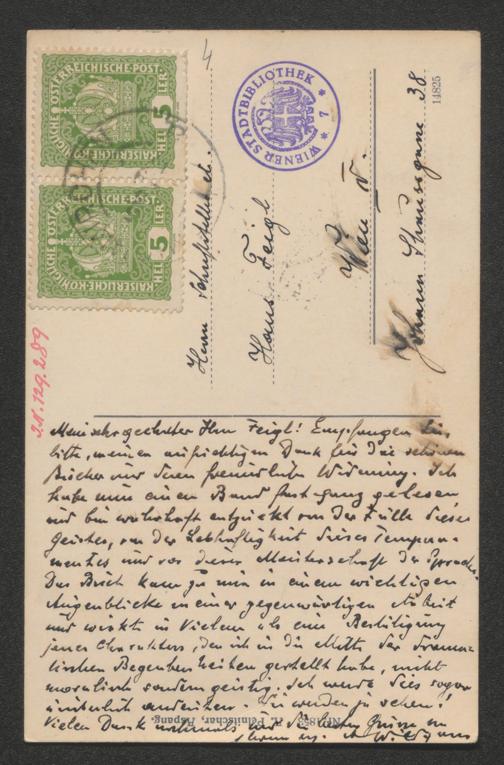 KAISERLICHE-KÖNIGLICHE ÖSTERREICHISCHE-POST
5 HELLER
KAISERLICHE-KÖNIGLICHE ÖSTERREICHISCHE-POST
5 HELLER
4
WIENER STADTBIBLIOTHEK
* 7 *
14825
Herrn Schriftsteller
Hans Feigl
Wien V.
Johann Straussgasse 38
J.N. 129.289
Mein sehr geehrter Herr Feigl! Empfangen Sie,
bitte, meinen aufrichtigen Dank für die schönen
Bücher und deren freundliche Widmung. Ich
habe nun einen Band fast ganz gelesen
und bin wahrhaft entzückt von der Fülle dieses
Geistes, von der Lebhaftigkeit dieses Tempera-
mentes und von dieser Meisterschaft der Sprache.
Das Buch kam zu mir in einem wichtigen
Augenblicke meiner gegenwärtigen Arbeit
und wirkt in Vielem als eine Bestätigung
jenes Charakters, den ich in die Mitte der drama-
tischen Begebenheiten gestellt habe, nicht
moralisch sondern geistig. Ich werde dies sogar
andeuten. Sie werden ja sehen!
Vielen Dank nochmals und die besten Grüsse von
Ihrem
Petnitschar, Aspang.